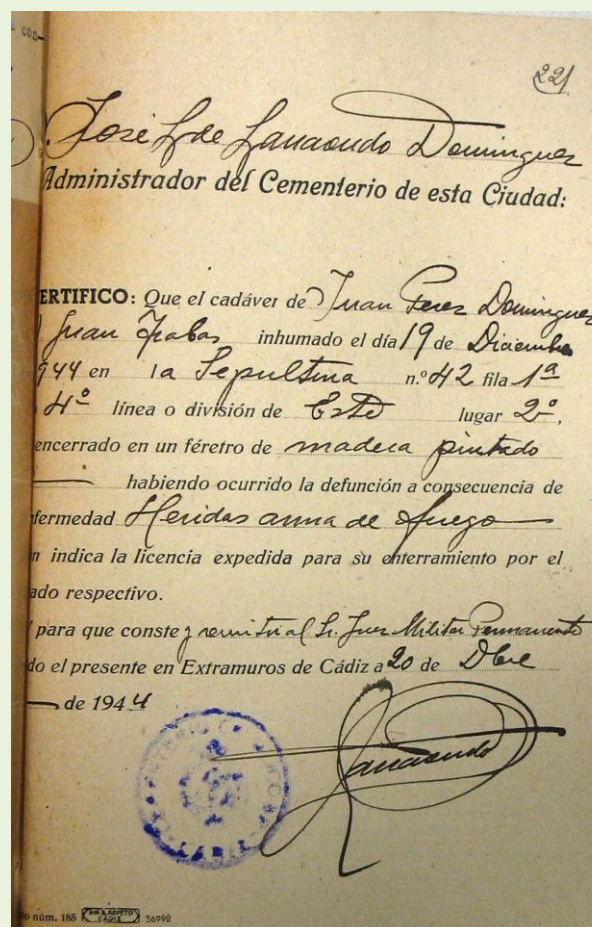 221
José L de Lanaondo Dominguez
Administrador del Cementerio de esta Ciudad:
ERTIFICO: Que el cadáver de Juan Perez Dominguez
Juan inhumado el día 19 de Diciembre
944 en la Sepultura n.º 42 fila 1ª
4º línea o división de Este lugar 2º,
encerrado en un féretro de madera pintado
habiendo ocurrido la defunción a consecuencia de
fermedad Heridas arma de fuego
n indica la licencia expedida para su enterramiento por el
ado respectivo.
para que conste y remitir al Sr. Juez Militar Permanente
do el presente en Extramuros de Cádiz a 20 de Dbre
de 1944
Lanaondo
o núm. 185 CÁDIZ 36992